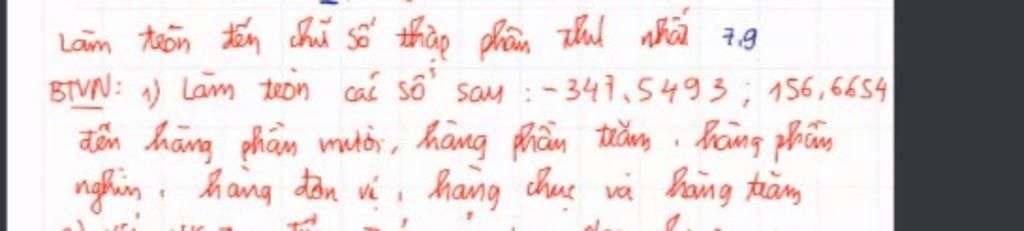 Làm tròn đến chữ số thập phân thứ nhất 7,9
BTVN: 1) Làm tròn các số sau : -347,5493 ; 156,6654
đến hàng phần mười, hàng phần trăm, hàng phần
nghìn, hàng đơn vị, hàng chục và hàng trăm